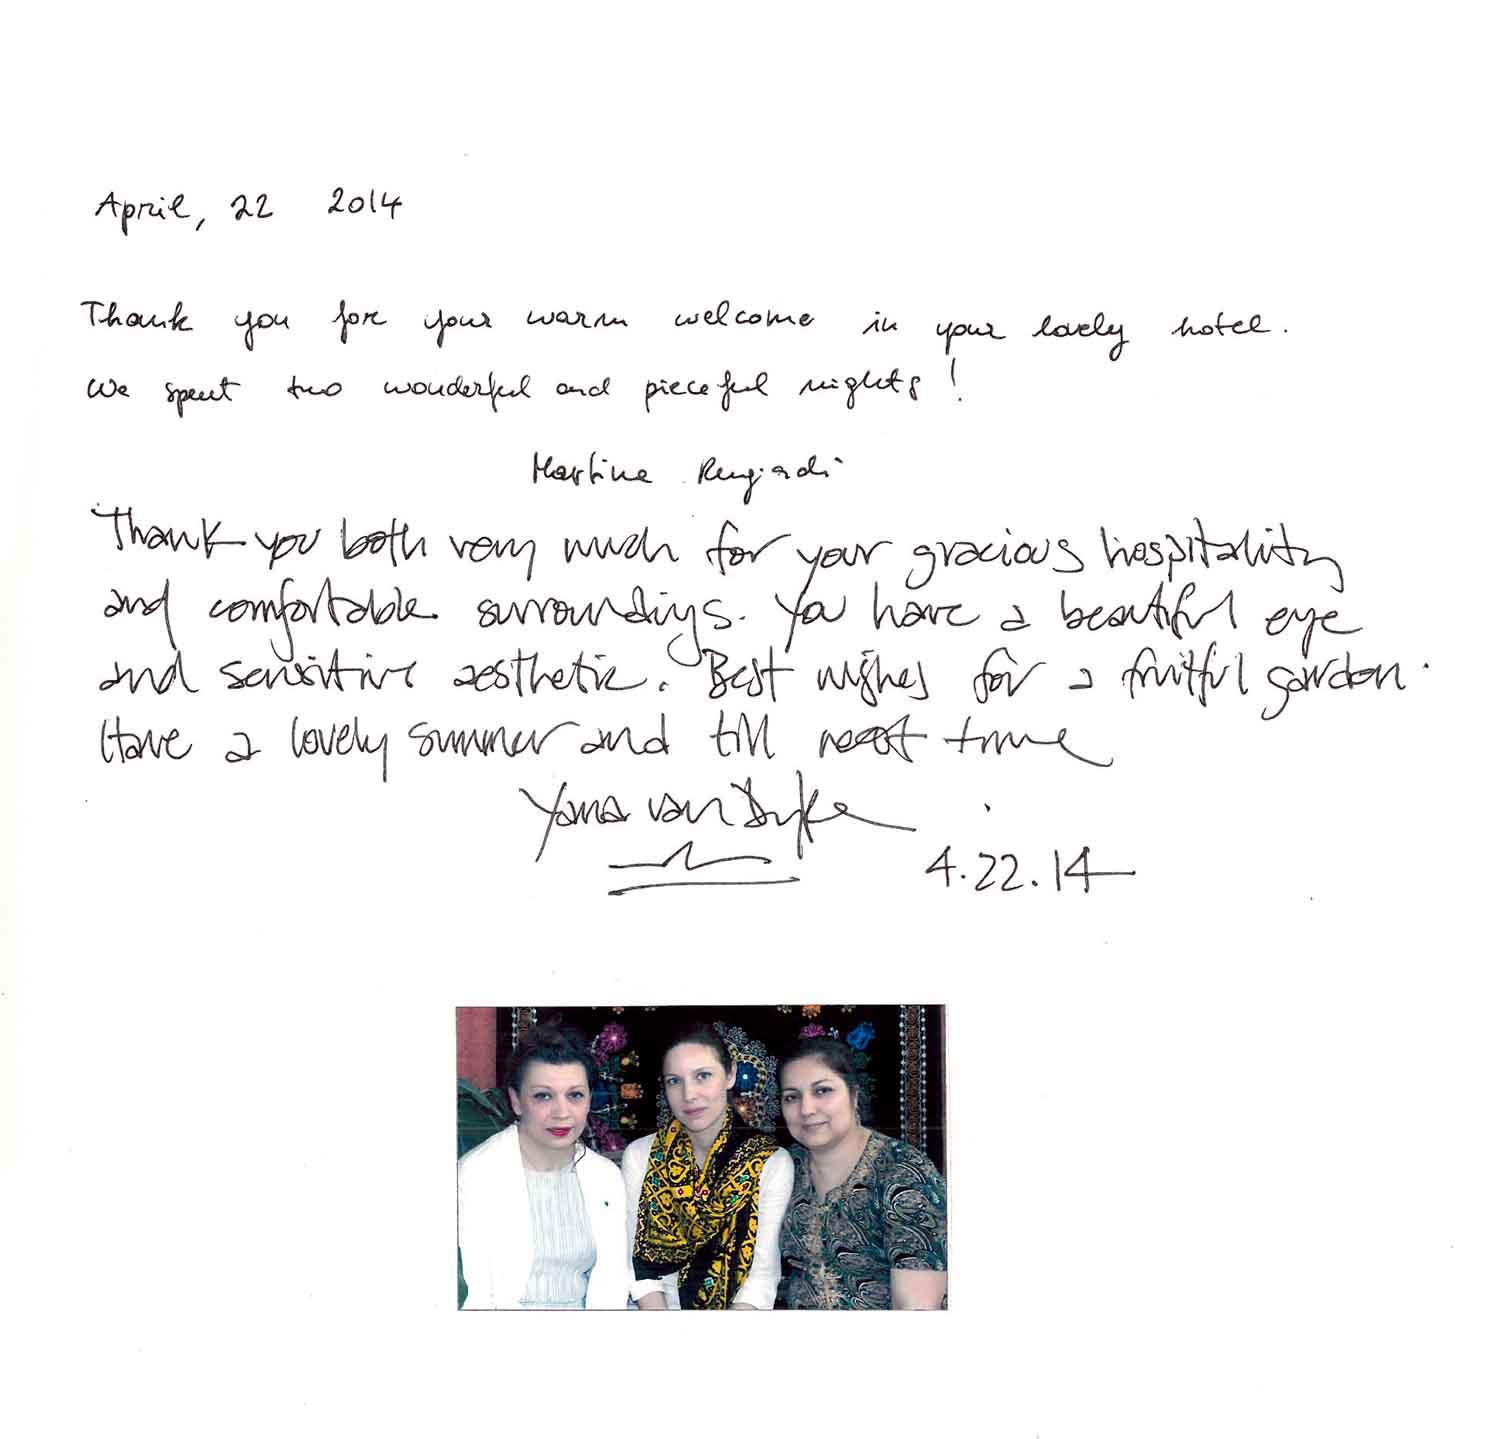 April, 22 2014
Thank you for your warm welcome in your lovely hotel.
We spent two wonderful and pieceful nights!
Martina Rugiadi
Thank you both very much for your gracious hospitality
and comfortable surroundings. You have a beautiful eye
and sensitive aesthetic. Best wishes for a fruitful garden.
Have a lovely summer and till next time
Yana van Dyke
4.22.14